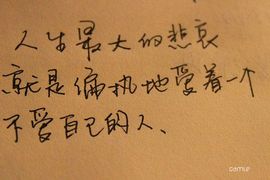 人生最大的悲哀
就是偏执地爱着一个
不爱自己的人、
camile